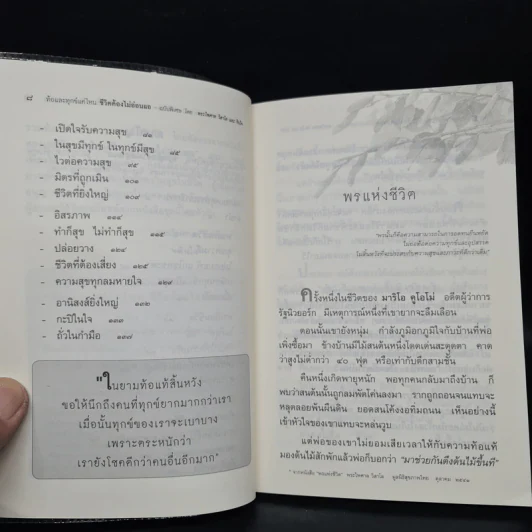 ๘ ท้อและทุกข์แค่ไหน ชีวิตต้องไม่อ่อนแอ
- เปิดใจรับความสุข ๘๑
- ในสุขมีทุกข์ ในทุกข์มีสุข ๘๕
- ไวต่อความสุข ๙๕
- มิตรที่ถูกเมิน ๑๐๑
- ชีวิตที่ยิ่งใหญ่ ๑๐๙
- อิสรภาพ ๑๑๔
- ทำก็สุข ไม่ทำก็สุข ๑๑๙
- ปล่อยวาง ๑๒๑
- ชีวิตที่ต้องเสี่ยง ๑๒๕
- ความสุขทุกลมหายใจ ๑๒๙
- อานิสงส์ยิ่งใหญ่ ๑๓๒
- กะปิในใจ ๑๓๕
- ถั่วในกำมือ ๑๓๗
"ในยามท้อแท้สิ้นหวัง
ขอให้นึกถึงคนที่ทุกข์ยากมากกว่าเรา
เมื่อนั้นทุกข์ของเราจะเบาบาง
เพราะตระหนักว่า
เรายังโชคดีกว่าคนอื่นอีกมาก"
พรแห่งชีวิต
ครั้งหนึ่งในชีวิตของ มาริโอ คูโอโม่ อดีตผู้ว่าการ
รัฐนิวยอร์ก มีเหตุการณ์หนึ่งที่เขายากจะลืมเลือน
ตอนนั้นเขายังหนุ่ม กำลังภูมิอกภูมิใจกับบ้านที่พ่อ
เพิ่งซื้อมา ข้างบ้านมีไม้สนต้นหนึ่งโดดเด่นสะดุดตา คาด
ว่าสูงไม่ต่ำกว่า ๔๐ ฟุต หรือเท่ากับตึกสามชั้น
คืนหนึ่งเกิดพายุหนัก พอทุกคนกลับมาถึงบ้าน ก็
พบว่าสนต้นนั้นถูกลมพัดโค่นลงมา รากถูกถอนจนแทบจะ
หลุดลอยพ้นผืนดิน ยอดสนโค้งงอทิ่มถนน เห็นอย่างนี้
เข้าหัวใจของเขาแทบจะหล่นวูบ
แต่พ่อของเขาไม่ยอมเสียเวลาให้กับความท้อแท้
มองต้นไม้สักพักแล้วพ่อก็บอกว่า "มาช่วยกันดึงต้นไม้ขึ้นที"
* จากหนังสือ "พรแห่งชีวิต" พระไพศาล วิสาโล